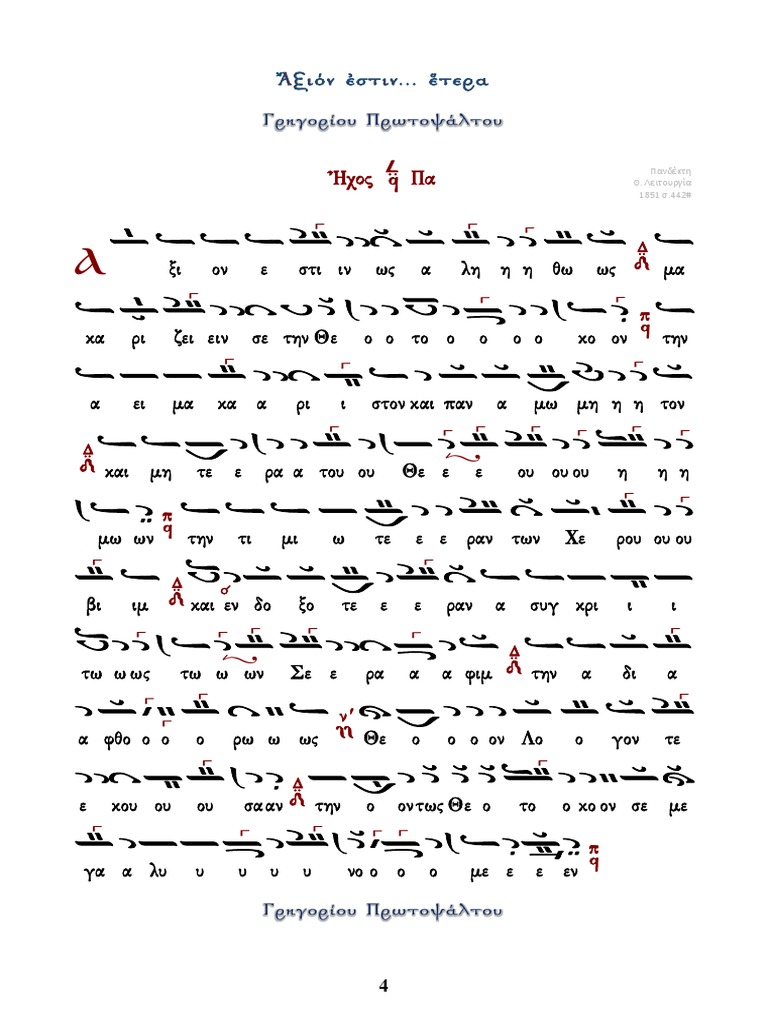 Ἄξιόν ἐστιν... ἕτερα
Γρηγορίου Πρωτοψάλτου
Ἦχος q̈ Πα
Πανδέκτη
Θ. Λειτουργία
1851 σ.442#
Α ξι ον ε στι ιν ως α λη η η θω ως Δ μα
κα ρι ζει ειν σε την Θε ο ο το ο ο ο ο κο ον π q την
α ει μα κα α ρι ι στον και παν α μω μη η η τον
Δ και μη τε ε ρα α του ου Θε ε ε ου ου ου η η η
μω ων π q την τι μι ω τε ε ε ραν των Χε ρου ου ου
βι ιμ Δ και εν δο ξο τε ε ε ραν α συγ κρι ι ι
τω ω ως τω ω ων Σε ε ρα α α φιμ Δ την α δι α
α φθο ο ο ο ρω ω ως ν′ Θε ο ο ο ον Λο ο γον τε
ε κου ου ου σα αν Δ την ο ον τως Θε ο το ο κο ον σε με
γα α λυ υ υ υ υ νο ο ο ο με ε ε εν π q
Γρηγορίου Πρωτοψάλτου
4